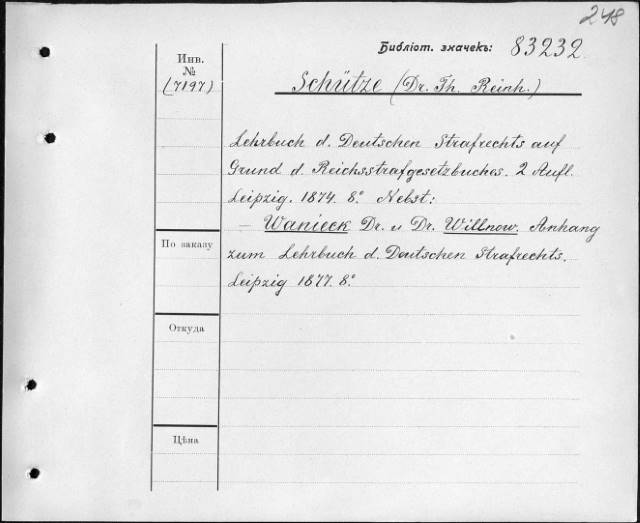 248
Библіот. значекъ: 83232.
Инв.
№
(7197)
Schütze (Dr. Th. Reinh.)
Lehrbuch d. Deutschen Strafrechts auf
Grund d. Reichsstrafgesetzbuches. 2 Aufl.
Leipzig. 1874. 8.° Nebst:
— Wanieck Dr. u Dr. Willnow. Anhang
zum Lehrbuch d. Deutschen Strafrechts.
Leipzig 1877. 8.°
По заказу
Откуда
Цѣна